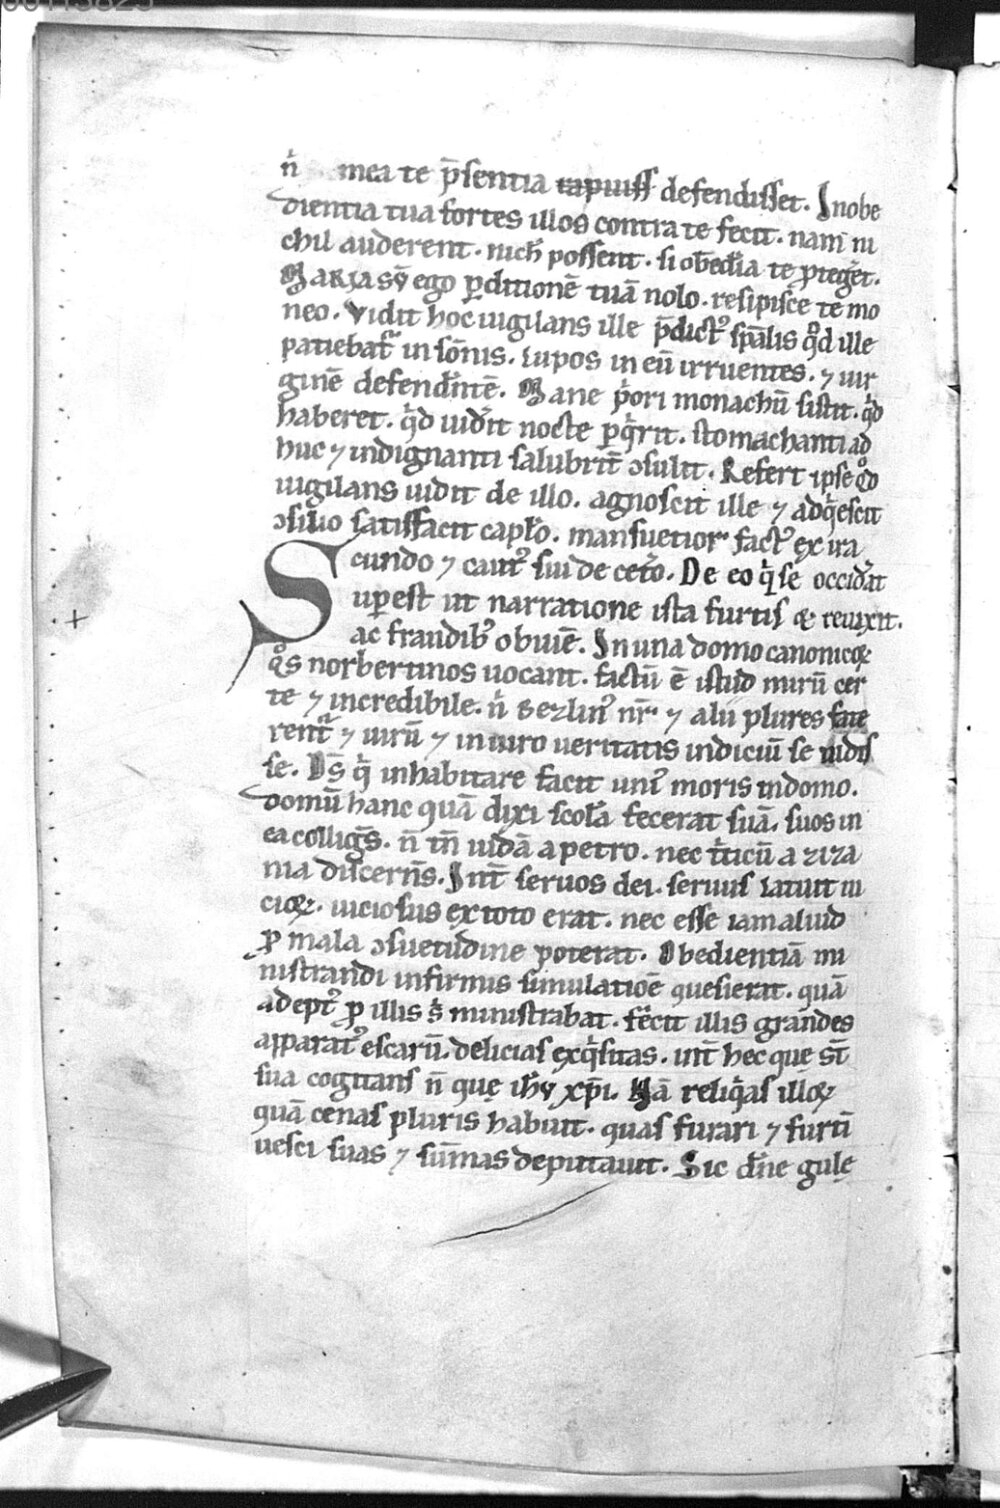 n̄ mea te p̄sentia rapuiss̄ defendisset. Inobe
dientia tua fortes illos contra te fecit. nam ni
chil auderent. nich̄ possent. si obedīa te ꝓteḡet.
Maria sū ego ꝑditionē tuā nolo. resipisce te mo
neo. Vidit hoc uigilans ille p̄dict᷒ sp̄alis qͦd ille
patiebat᷑ in sōnis. lupos in eū irruentes. ⁊ uir
ginē defendētē. Mane p̄ori monachū sistit. qͥd
haberet. qͥd uidīt nocte ꝑqͥrit. stomachanti ad
huc ⁊ indignanti salubrit̄ ɔsulit. Refert ipse qͦd
uigilans uidit de illo. agnoscit ille ⁊ adqͥescit
ɔsilio satisfacit capl̄o. mansuetior fact᷒ ex ira
cundo ⁊ caut᷒ sui de cet̄o. De eo qͥ se occidāt
Suꝑest ut narratione ista furtis & reuixit.
ac fraudib᷒ obuiē. In una domo canonicoꝝ
qͦs norbertinos uocant. factū ē istud mirū cer
te ⁊ incredibile. n̄ Bezlin᷒ nr̄ ⁊ alii plures fate
rent᷑ ⁊ uirū ⁊ in uiro ueritatis indiciū se uidis
se. Ds̄ qͥ inhabitare facit uni᷒ moris in domo.
domū hanc quā dixi scolā fecerat suā. suos in
ea colligēs. n̄ tn̄ uidā a petro. nec tͥticū a ziza
nia discernēs. Int̄ seruos dei. seruus latuit ui
cioꝝ. uiciosus ex toto erat. nec esse iam aliud
ꝓ mala ɔsuetudine poterat. Obedientiā mi
nistrandi infirmis simulatiōe quesierat. quā
adept᷒ ꝓ illis sͥ ministrabat. fecit illis grandes
apparat᷒ escarū. delicias exqͥsitas. int̄ hec que st̄
sua cogitans n̄ quę ih̄u xp̄i. Nā reliqͥas illoꝝ
quā cenas pluris habuit. quas furari ⁊ furtī
uesci suas ⁊ sūmas deputauit. Sic dn̄e gulę